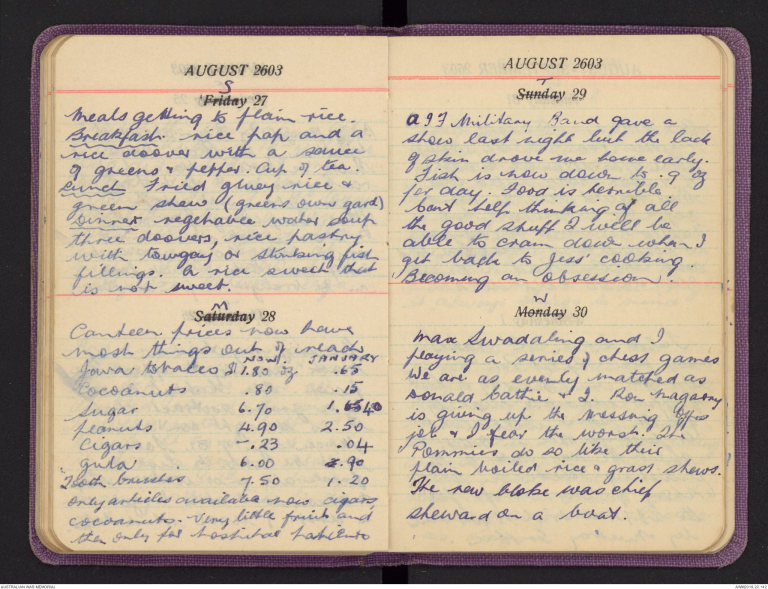 AUGUST 2603
S
Friday 27
Meals getting to plain rice.
Breakfast rice pap and a
rice doover with a sauce
of greens & pepper. Cup of tea.
Lunch Fried gluey rice &
green stew (greens own gard)
Dinner vegetable water soup
three doovers, rice pastry
with towgay or stinking fish
fillings. A rice sweet that
is not sweet.
M
Saturday 28
Canteen prices now have
most things out of reach
NOW. JANUARY
Java tobacco $1.80 oz .65
Cocoanuts .80 .15
Sugar 6.70 1.40
Peanuts 4.90 2.50
Cigars .23 .04
gula 6.00 .90
Tooth brushes 7.50 1.20
Only articles available now cigars,
cocoanuts. Very little fruit and
then only for hospital patients
AUGUST 2603
T
Sunday 29
AIF Military Band gave a
show last night but the lack
of skin drove me home early.
Fish is now down to .9 oz
per day. Food is horrible
Can't help thinking of all
the good stuff I will be
able to cram down when I
get back to Jess' cooking.
Becoming an obsession.
W
Monday 30
Max Swadling and I
playing a series of chess games
We are as evenly matched as
Donald Cattie & I. Ron Magarry
is giving up the Messing Offrs
job & I fear the worst. The
Pommies do so like their
plain boiled rice & grass stews.
The new bloke was chief
steward on a boat.
AUSTRALIAN WAR MEMORIAL